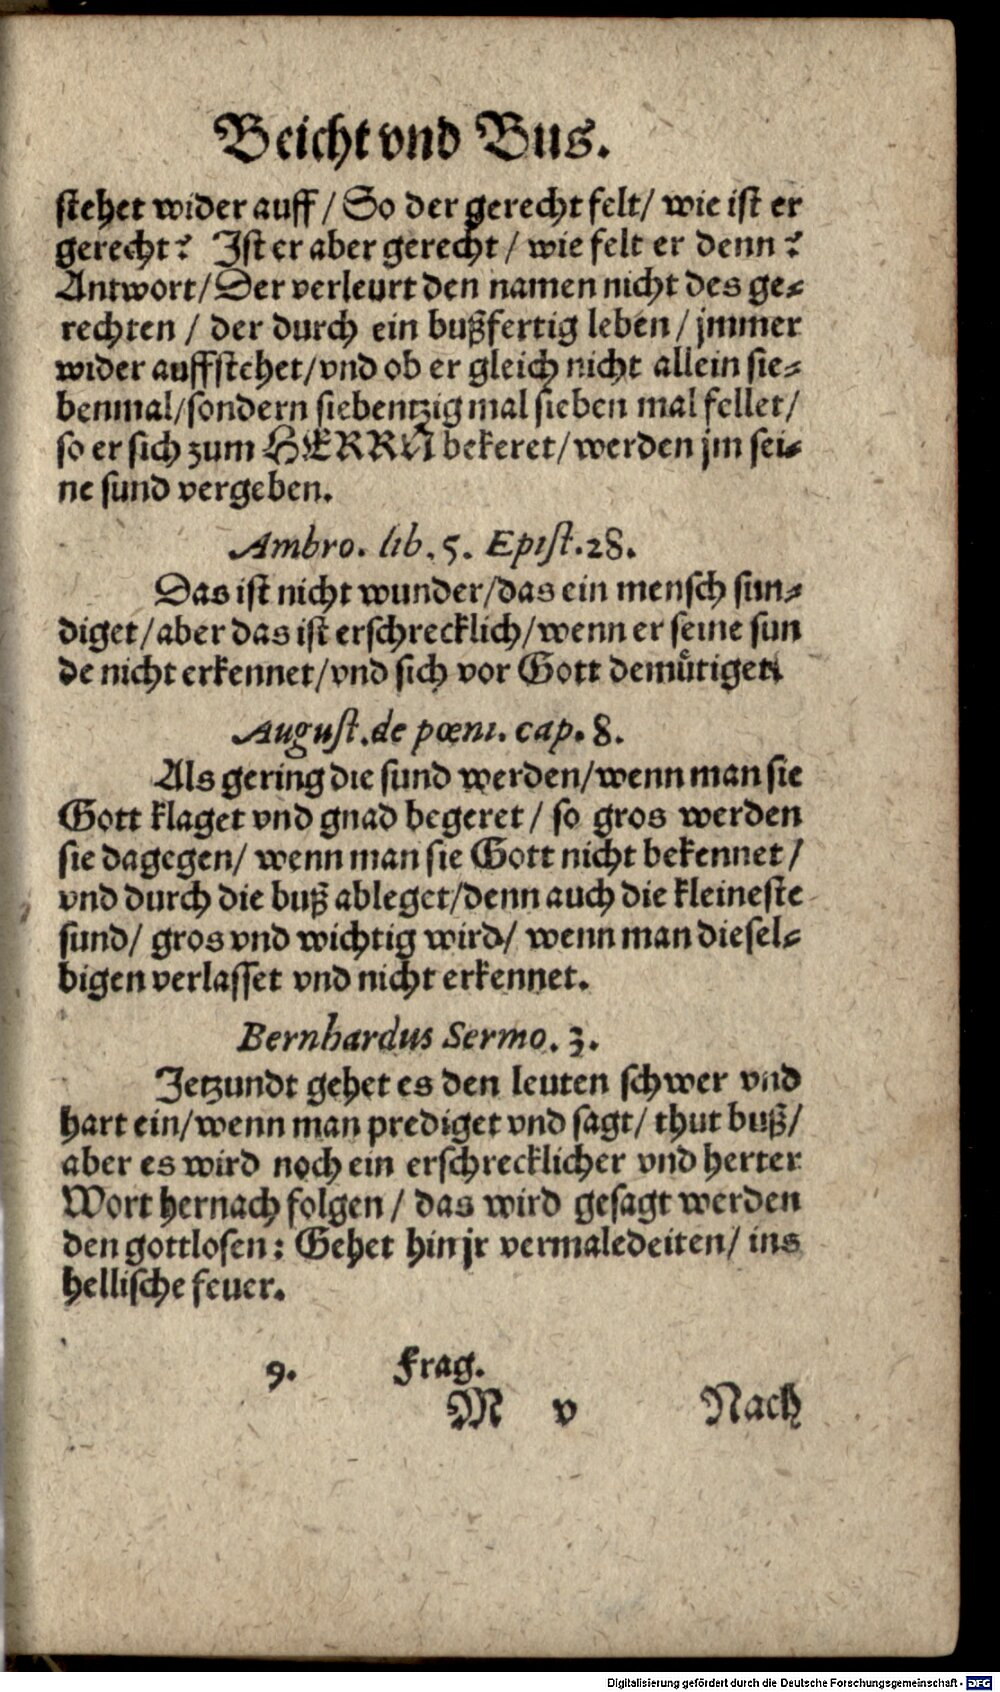 Beicht vnd Bus.
stehet wider auff / So der gerecht felt/ wie ist er
gerecht? Ist er aber gerecht / wie felt er denn?
Antwort/ Der verleurt den namen nicht des ge-
rechten / der durch ein bußfertig leben / jmmer
wider auffstehet/vnd ob er gleich nicht allein sie-
benmal/sondern siebentzig mal sieben mal fellet/
so er sich zum HERRN bekeret/werden jm sei-
ne sund vergeben.
Ambro. lib. 5. Epist. 28.
Das ist nicht wunder/das ein mensch sun-
diget/aber das ist erschrecklich/wenn er seine sun
de nicht erkennet/vnd sich vor Gott demütiget.
August. de pœni. cap. 8.
Als gering die sund werden/wenn man sie
Gott klaget vnd gnad begeret / so gros werden
sie dagegen/ wenn man sie Gott nicht bekennet /
vnd durch die buß ableget/denn auch die kleineste
sund/ gros vnd wichtig wird/ wenn man diesel-
bigen verlasset vnd nicht erkennet.
Bernhardus Sermo. 3.
Jetzundt gehet es den leuten schwer vnd
hart ein/wenn man prediget vnd sagt/ thut buß/
aber es wird noch ein erschrecklicher vnd herter
Wort hernach folgen / das wird gesagt werden
den gottlosen: Gehet hin jr vermaledeiten/ ins
hellische feuer.
9. Frag.
M v Nach
Digitalisierung gefördert durch die Deutsche Forschungsgemeinschaft - DFG